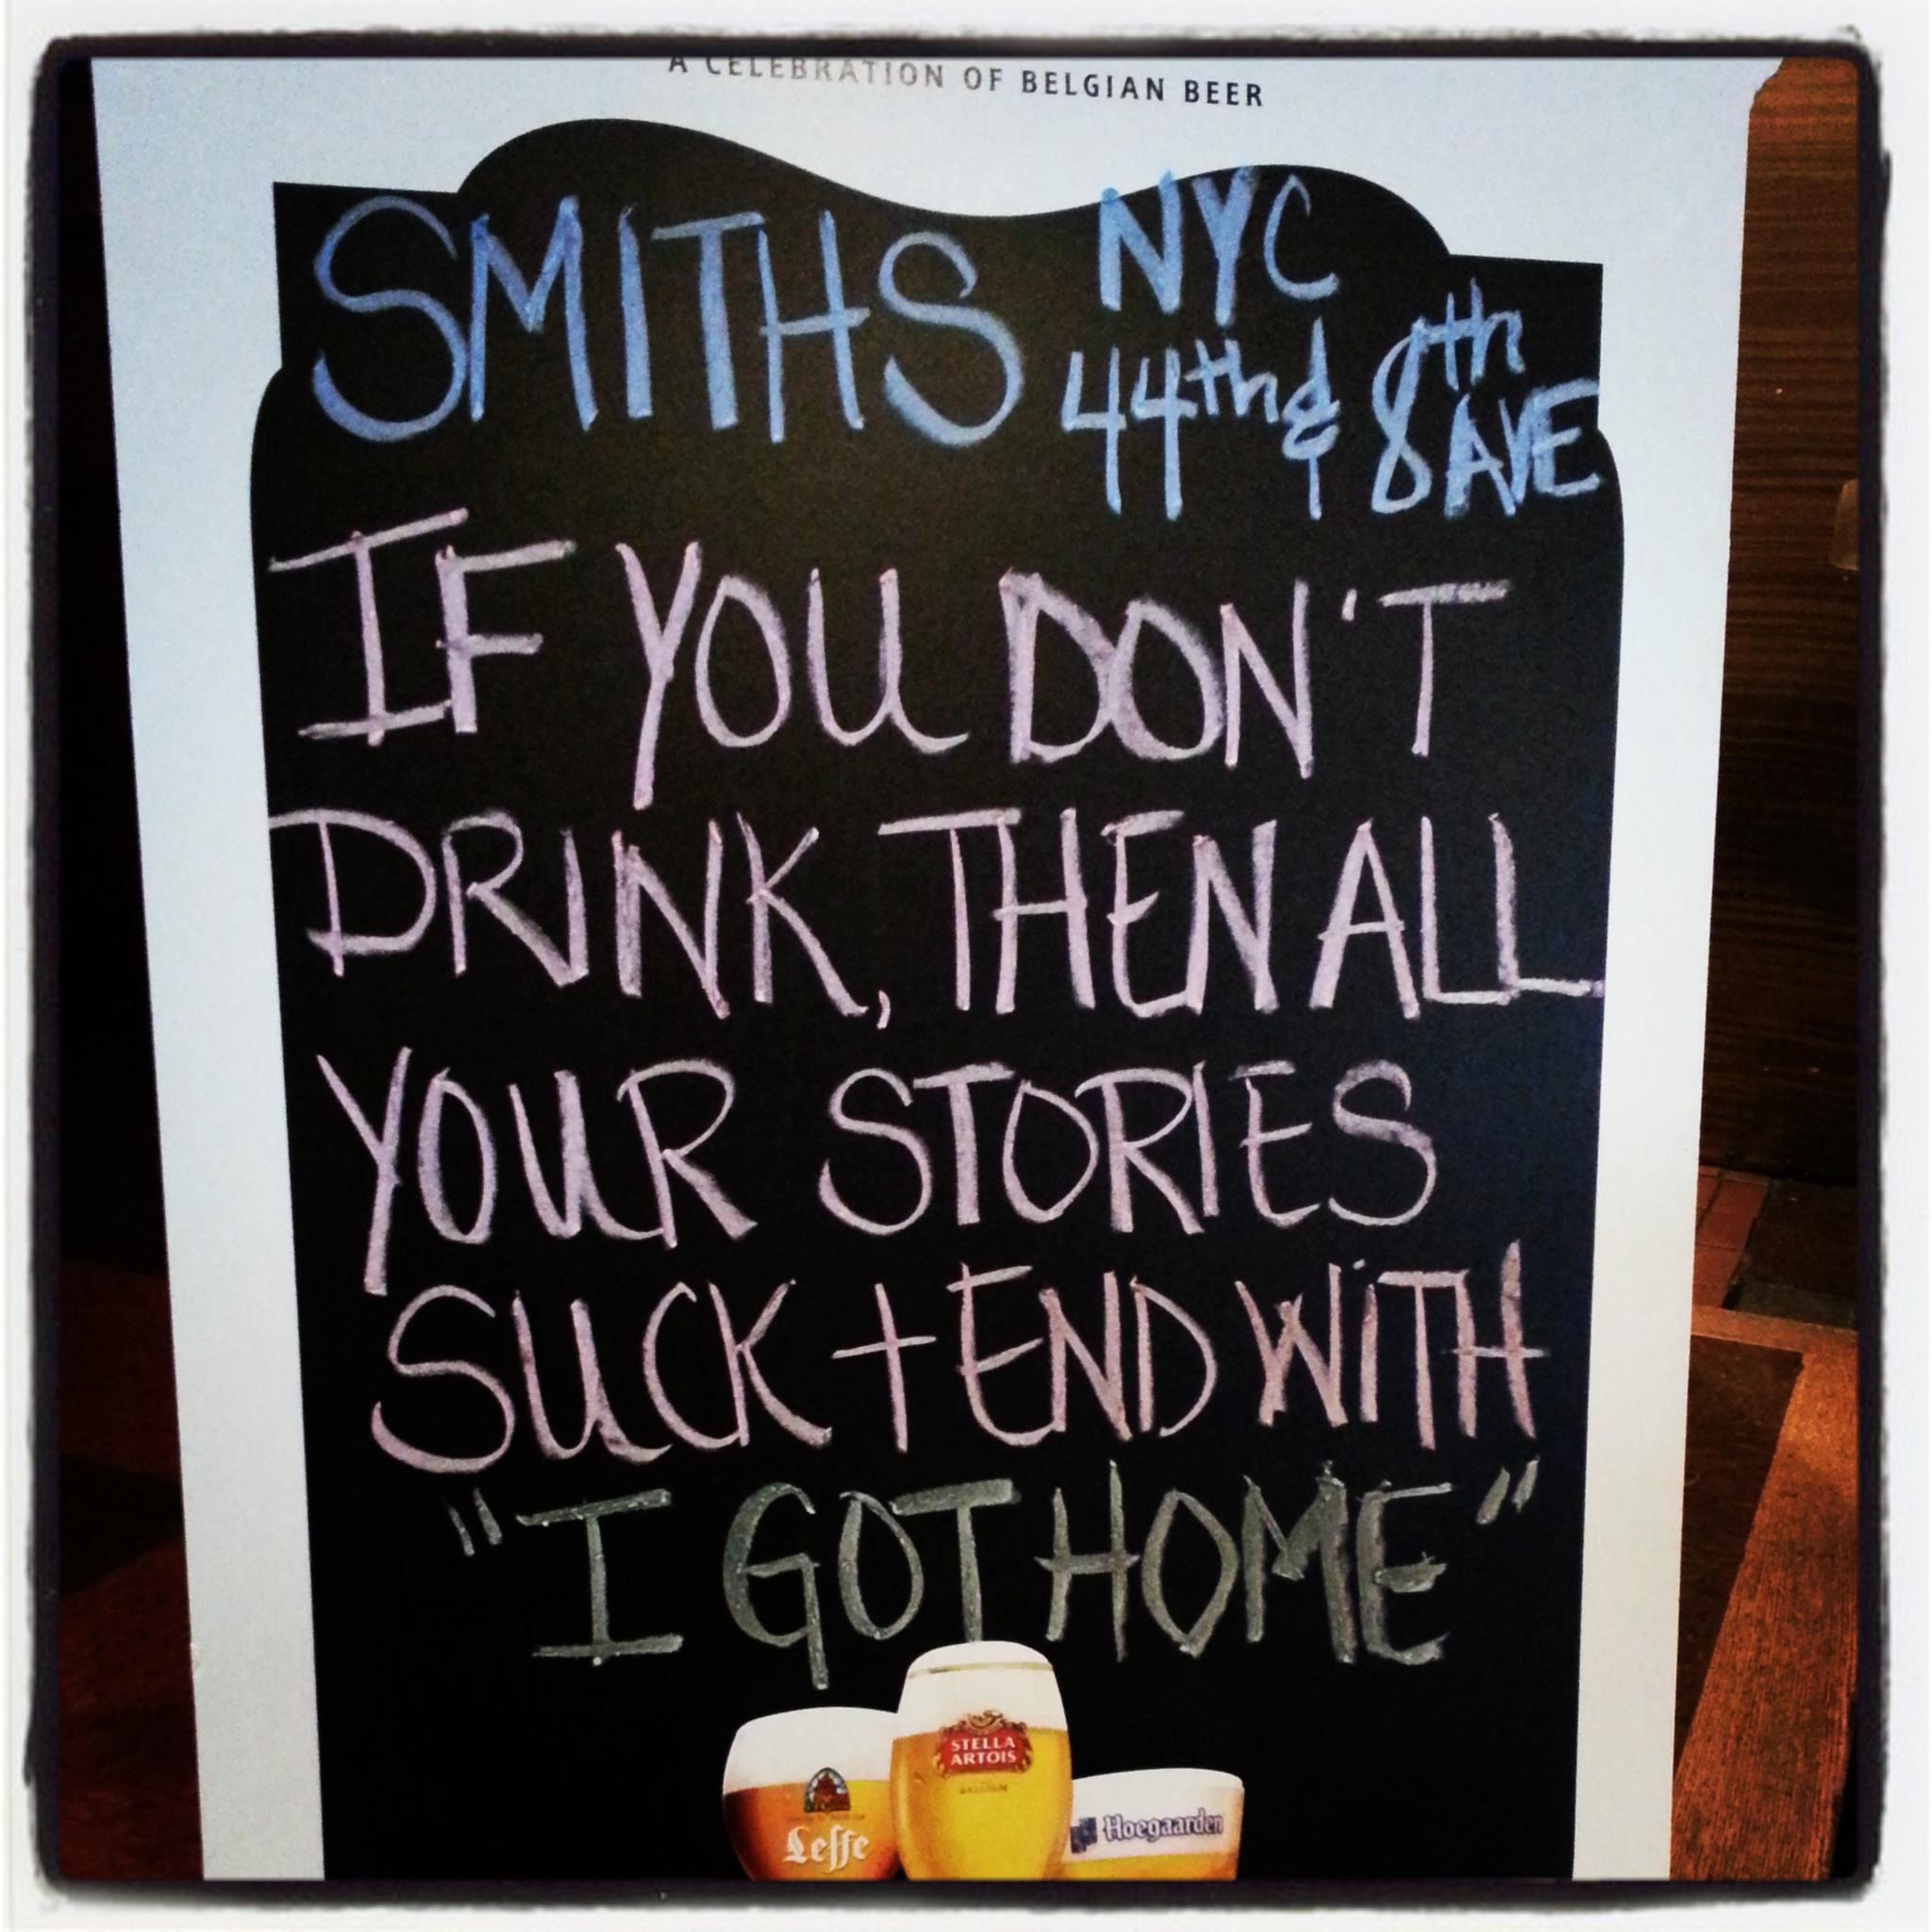 A CELEBRATION OF BELGIAN BEER
SMITHS NYC
44th & 8th
AVE
IF YOU DON'T
DRINK, THEN ALL
YOUR STORIES
SUCK + END WITH
"I GOT HOME"
STELLA
ARTOIS
BELGIUM
Leffe
Hoegaarden